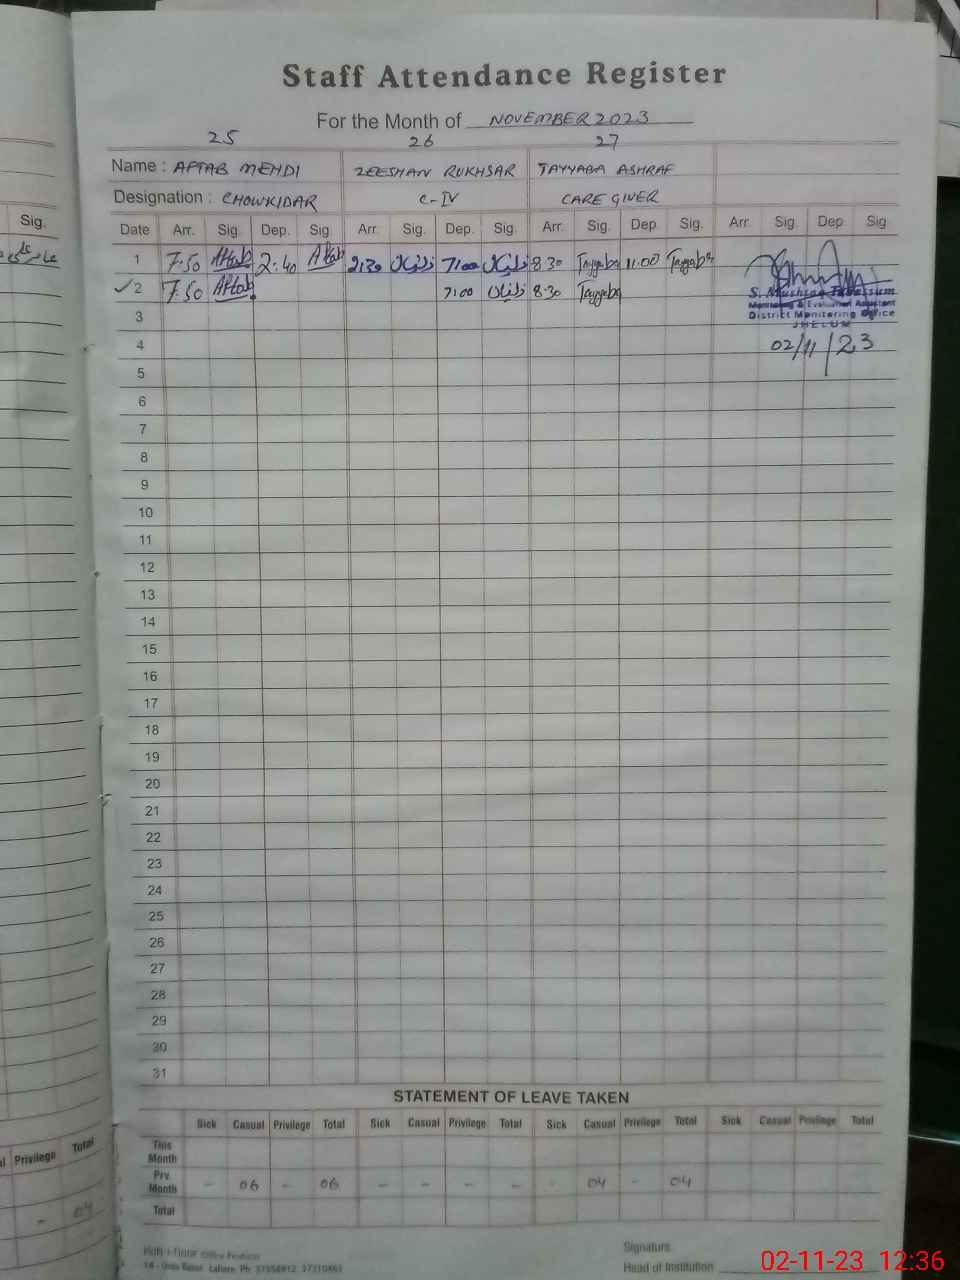 Staff Attendance Register
For the Month of NOVEMBER 2023
25 26 27
Name : AFTAB MEHDI ZEESHAN RUKHSAR TAYYABA ASHRAF
Designation : CHOWKIDAR C-IV CARE GIVER
Sig.
Date Arr. Sig. Dep. Sig. Arr. Sig. Dep. Sig. Arr. Sig. Dep. Sig. Arr. Sig. Dep. Sig
1 7:50 Aftab 2:40 Aftab 2:30 7:00 8:30 Tayyaba 11:00 Tayyaba
✓2 7:50 Aftab 7:00 8:30 Tayyaba
S. Mushtaq Tabassum
Monitoring & Evaluation Assistant
District Monitoring Office
JHELUM
02/11/23
3
4
5
6
7
8
9
10
11
12
13
14
15
16
17
18
19
20
21
22
23
24
25
26
27
28
29
30
31
STATEMENT OF LEAVE TAKEN
Sick Casual Privilege Total Sick Casual Privilege Total Sick Casual Privilege Total Sick Casual Privilege Total
This Month
Prv. Month - 06 - 06 - - - - - 04 - 04
Total
Privilege Total
- 04
Office Products
Lahore. Ph:
Signature
Head of Institution
02-11-23 12:36